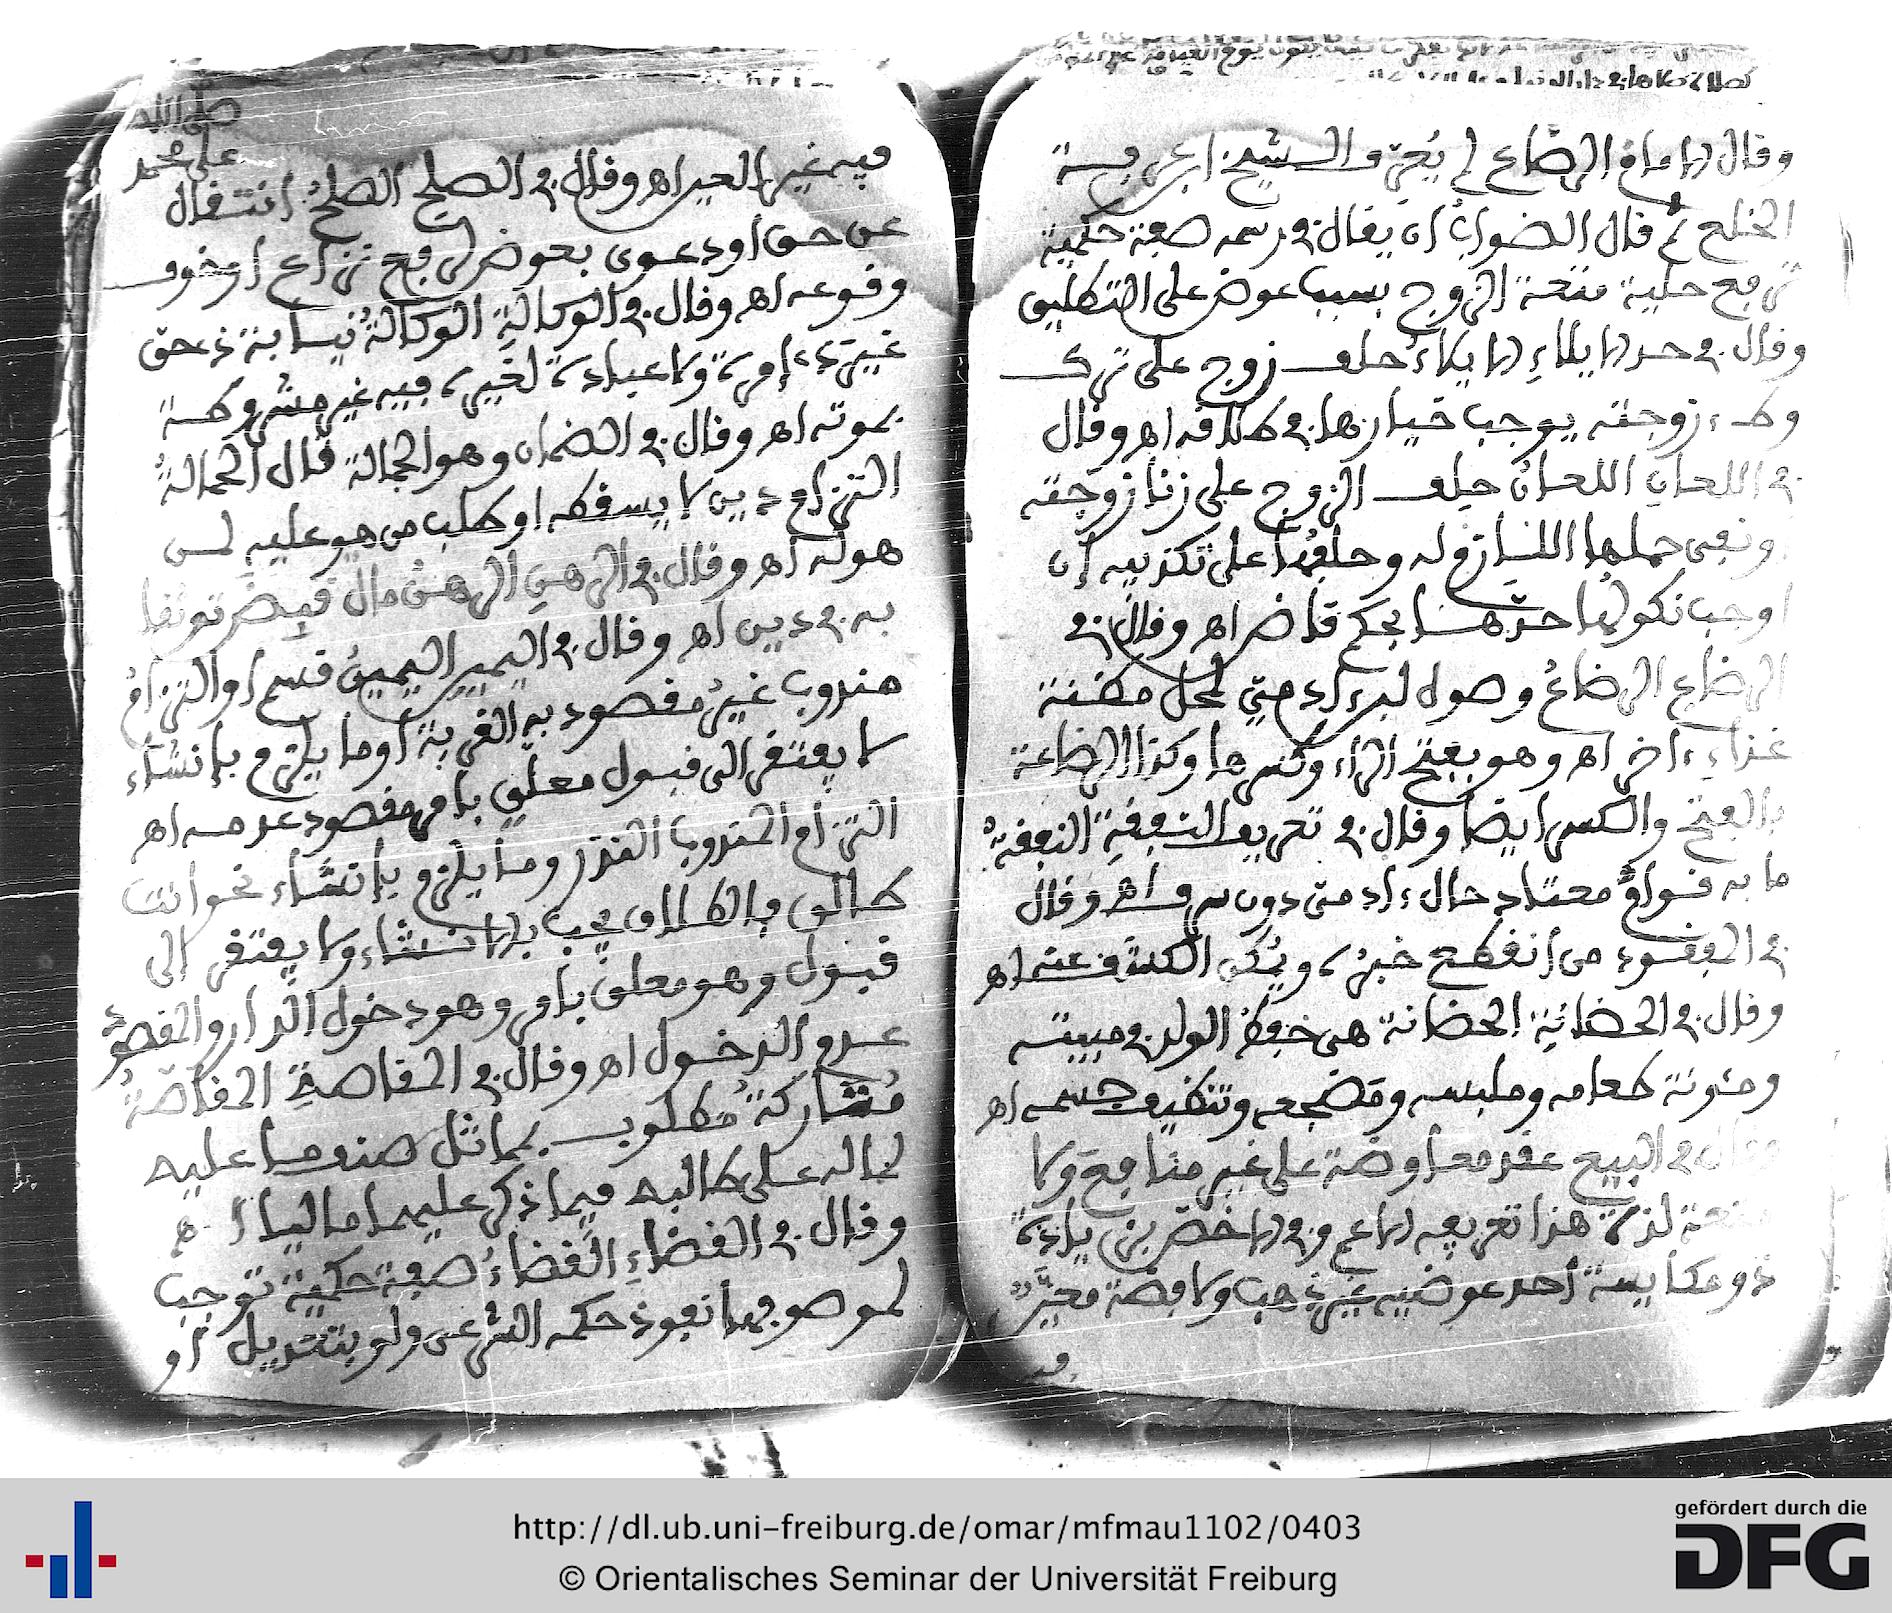 وقال الامام الرصاع لم يعرف الشيخ ابن عرفة
الخلع ثم قال الصواب أن يقال في رسمه صفة حكمية
ترفع حلية متعة الزوج بسبب عوض على التطليق
وقال في حد الايلاء الايلاء حلف زوج على ترك
وطء زوجته يوجب خيارها في طلاقه اه وقال
في اللعان اللعان حلف الزوج على زنا زوجته
ونفي حملها اللازم له وحلفها على تكذيبه إن
اوجب نكولها حدها بحكم قاض اه وقال في
الرضاع الرضاع وصول لبن ءادمي لمحل مظنة
غذاء ءاخر اه وهو بفتح الراء وكسرها وكذا الرضاعة
بالفتح والكسر ايضا وقال في تعريف النفقة النفقة
ما به قوام معتاد حال ءادمي دون سرف اه وقال
في المفقود من انقطع خبره ويمكن الكشف عنه اه
وقال في الحضانة الحضانة هي حفظ الولد في مبيته
ومئونة طعامه وملبسه ومضجعه وتنظيف جسمه اه
وقال في البيع عقد معاوضة على غير منافع ولا
متعة لذة هذا تعريفه الاعم وفي الاخص بزيادة
ذو مكايسة أحد عوضيه غير ذهب ولا فضة معين
فيه
صلى الله
على محمد
فيه غير العين اه وقال في الصلح الصلح انتقال
عن حق أو دعوى بعوض لرفع نزاع او خوف
وقوعه اه وقال في الوكالة الوكالة نيابة ذي حق
غير ذي إمرة ولا عبادة لغيره فيه غير مشروطة
بموته اه وقال في الضمان وهو الحمالة قال الحمالة
التزام دين لا يسقطه او طلب من هو عليه لمن
هو له اه وقال في الرهن الرهن مال قبض توثقا
به في دين اه وقال في اليمين اليمين قسم او التزام
مندوب غير مقصود به القربة أو ما يلزم بإنشاء
لا يفتقر الى قبول معلق بأمر مقصود عدمه اه
التزام المندوب النذر وما يلزم بإنشاء نحو انت
طالق فالطلاق يجب بالانشاء ولا يفتقر إلى
قبول وهو معلق بأمر وهو دخول الدار والمقصود
عدم الدخول اه وقال في المقاصة المقاصة
متاركة مطلوب بمماثل صنف ما عليه
لما له على طالبه فيما ذكر عليهما حاليا اه
وقال في القضاء القضاء صفة حكمية توجب
لموصوفها نفوذ حكمه الشرعي ولو بتعديل أو
http://dl.ub.uni-freiburg.de/omar/mfmau1102/0403
© Orientalisches Seminar der Universität Freiburg
gefördert durch die
DFG